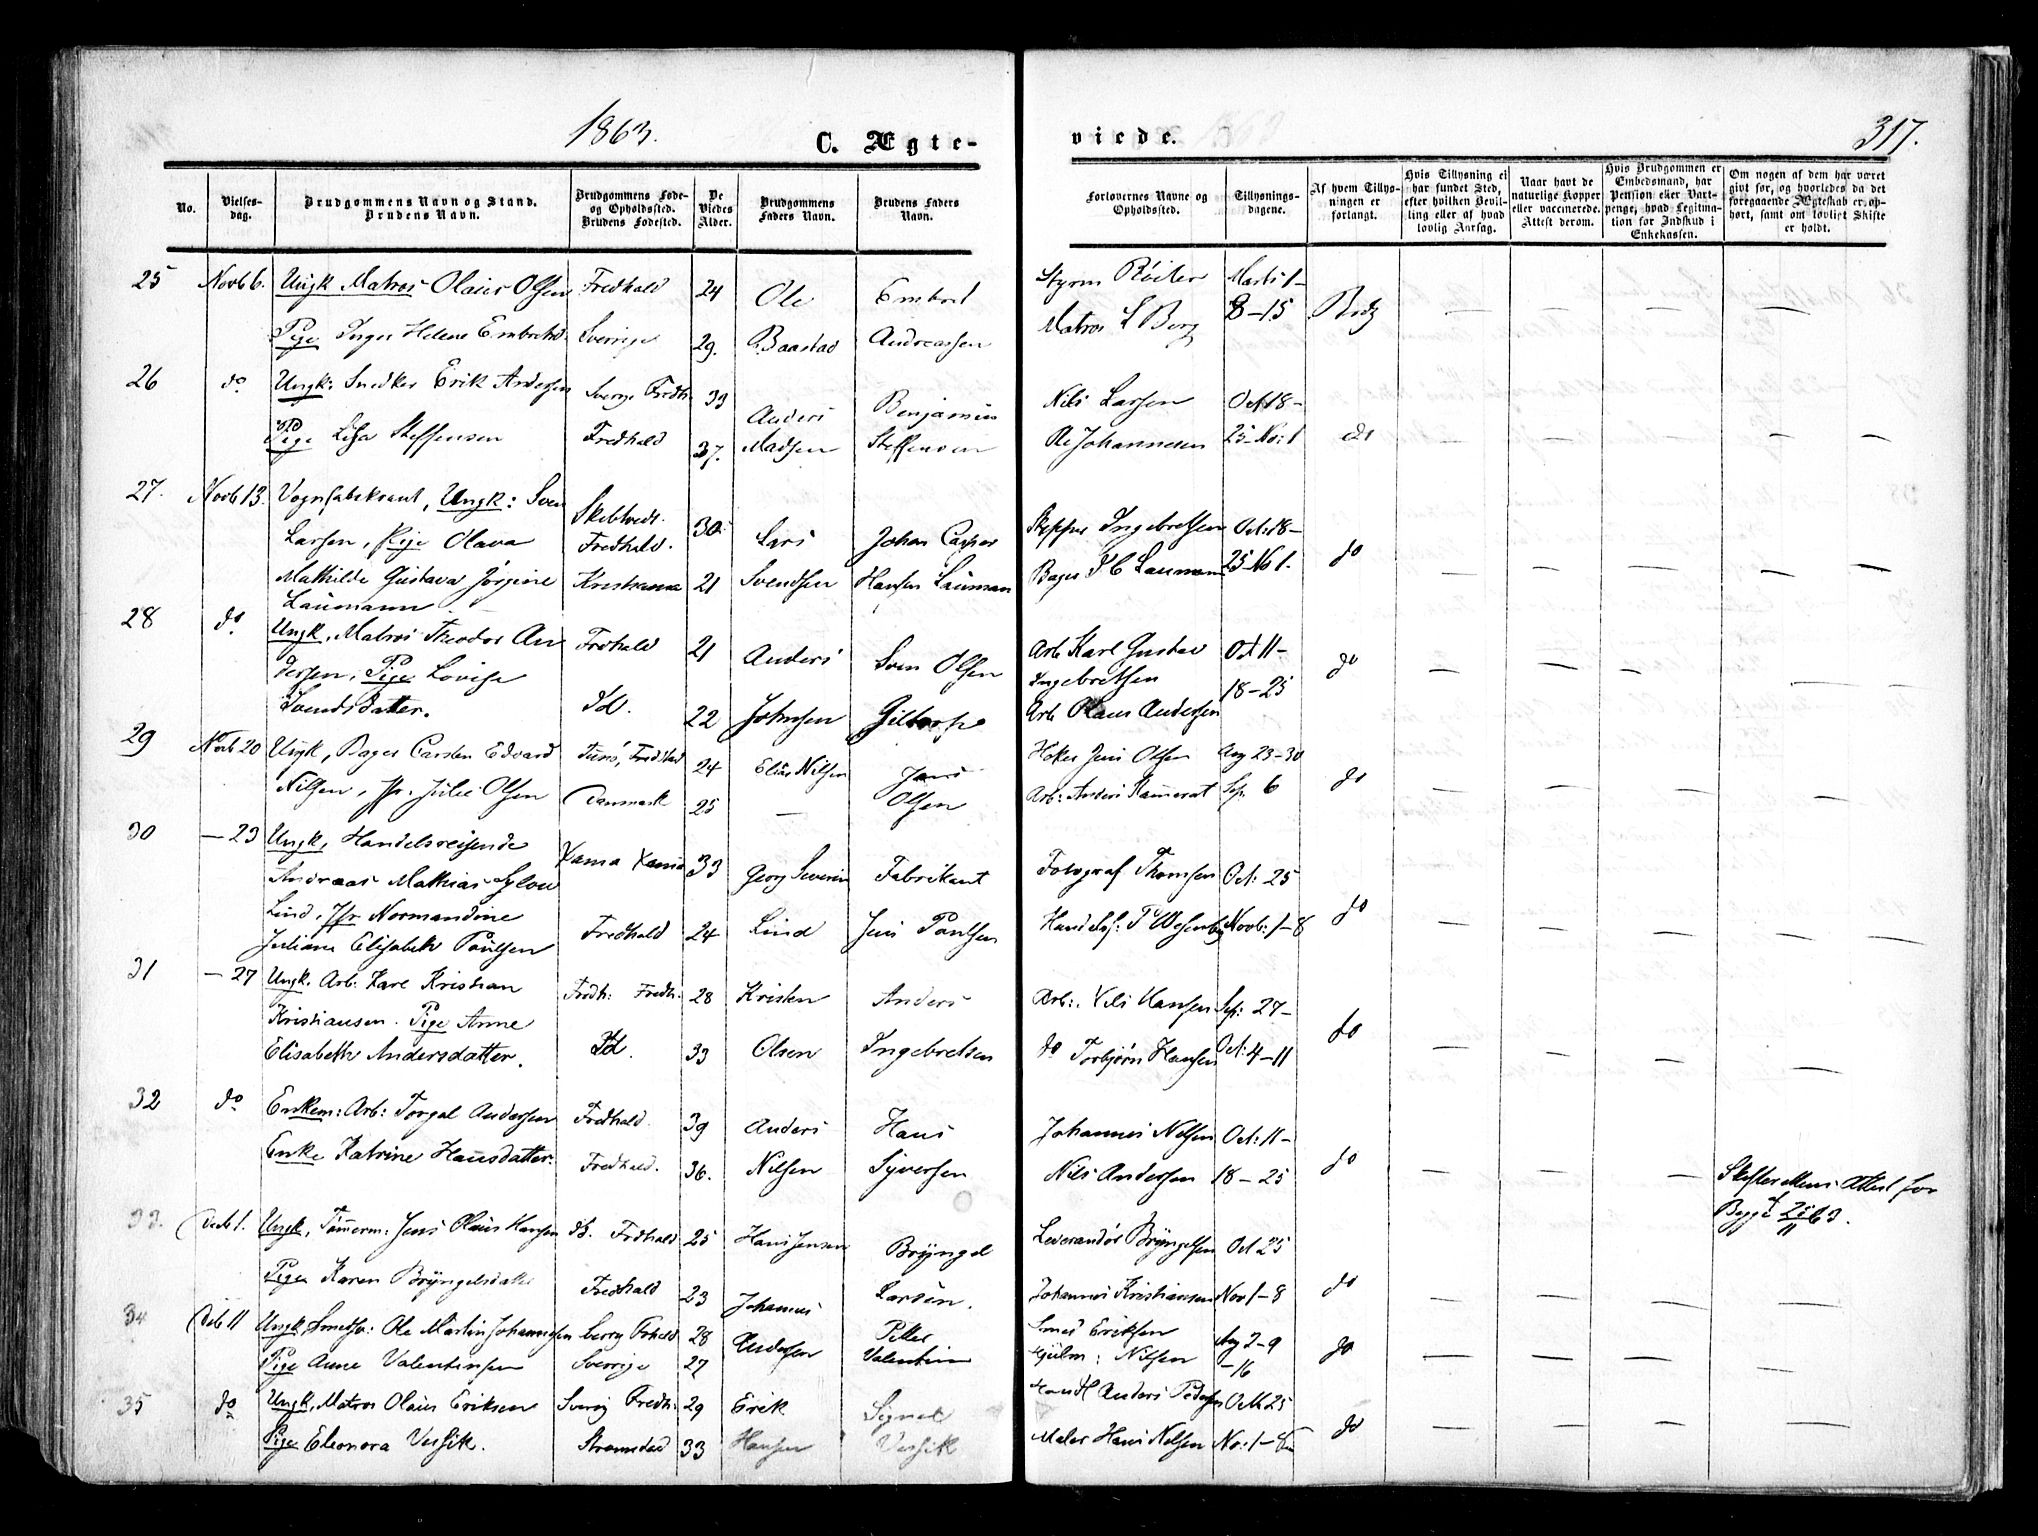 1863.
C. Ægte-
viede.
317.
No.
Vielses-
dag.
Brudgommens Navn og Stand.
Brudens Navn.
Brudgommens Føde-
og Opholdssted.
Brudens Fødested.
De
Viedes
Alder.
Brudgommens
Faders Navn.
Brudens Faders
Navn.
Forlovernes Navne og
Opholdssted.
Tillysnings-
dagene.
Af hvem Tillys-
ningen er
forlangt.
Hvis Tillysning ei
har fundet Sted,
efter hvilken Bevil-
ling eller af hvad
lovlig Aarsag.
Naar havt de
naturlige Kopper
eller vaccinerede.
Attest derom.
Hvis Brudgommen er
Embedsmand, har
Pension eller Vart-
penge, hvad Legitima-
tion for Indskud i
Enkekassen.
Om nogen af dem har været
givt før, og hvorledes da det
foregaaende Ægteskab er op-
hørt, samt om lovligt Skifte
er holdt.
25 Novb 6. Ungk Matros Olaus Olsen Fredhald 24 Ole Embret Styrm Röiter Marts 1-
Pige Inger Helene Embretsd. Sverrige 29. Baastad Andreassen Matros L Berg 8-15
26 do Ungk: Snedker Erik Andersen Sverge Fredh. 39 Anders Benjamin Nils Larsen Oct 18-
Pige Lisa Steffensen Fredhald 37. Madsen Steffensen Ole Johannesen 25-Nov 1 do
27. Novb 13. Vognfabrikant, Ungk: Sven Skebtvedt. 30 Lars Johan Casper Skipper Ingebretsen Oct: 18-
Larsen, Pige Olava Fredhald.
Mathilde Gustava Jørgine Kristiania 21 Svendsen Hansen Laumann Bager J C Laumann 25-No 1. do
Laumann
28 do. Ungk, Matros Theodor An Frdhald 21 Anders Sven Olsen Arb Karl Gustav Oct 11-
dersen, Pige Lovise Ingebretsen 18-25 do
Svendsdatter. Id. 22 Johnsen Arb Olaus Andersen
29 Novb 20 Ungk, Bager Carsten Edvard 24 Elias Nilsen Jens Høker Jens Olsen Aug 23-30
Nilsen, Jfr. Julie Olsen Danmark 25 — Olsen Arb: Anders Kamerat Sep. 6 do
30 — 23 Ungk, Handelsreisende
Andreas Mathias Sylow 33 Georg Severin Fabrikant Fotograf Thomsen Oct: 25
Lind, Jfr Normandine Fredhald 24 Lind Jens Paulsen Novb: 1-8 do
Juliane Elisabeth Paulsen
31 — 27 Ungk. Arb: Karl Kristian Fredh: Fredh: 28 Kristen Anders Arb: Nils Hansen Sep: 27-
Kristiansen. Pige Anne
Elisabeth Andersdatter. Id. 33 Olsen Ingebretsen do Torbjørn Hansen Oct: 4-11 do
32 do Enkem: Arb: Torgal Andersen Fredhald. 39 Anders Hans Johannes Nilsen Oct: 11-
Enke Katrine Hansdatter. Fredhald. 36. Nilsen Syversen Nils Andersen 18-25 do Skifterettens Attest for
Begge 25/11 63.
33. Decb 1. Ungk, Tømmerm: Jens Olaus Hansen Frdhald 25 Hans Jensen Bryngel Leverandør Bryngelsen Oct 25
Pige Karen Bryngelsdatter Fredhald 23 Larsen. Johannes Kristiansen Nov 1-8 do
34 Decb 11 Ungk, Smedsv: Ole Martin Johannesen Frhald 28 Johannes Petter Smed Eriksen Aug 2-9
Pige Anne Valentinsen Sverrige 27 Andersen Valentin Nilsen -16 do
35 do Ungk, Matros Olaus Eriksen Sverig Fredh: 29 Erik Signal Anders Pedersen Octb 25
Pige Eleonora Versik. Strømstad 33 Hansen Versik Maler Hans Nilsen No: 1-8 do